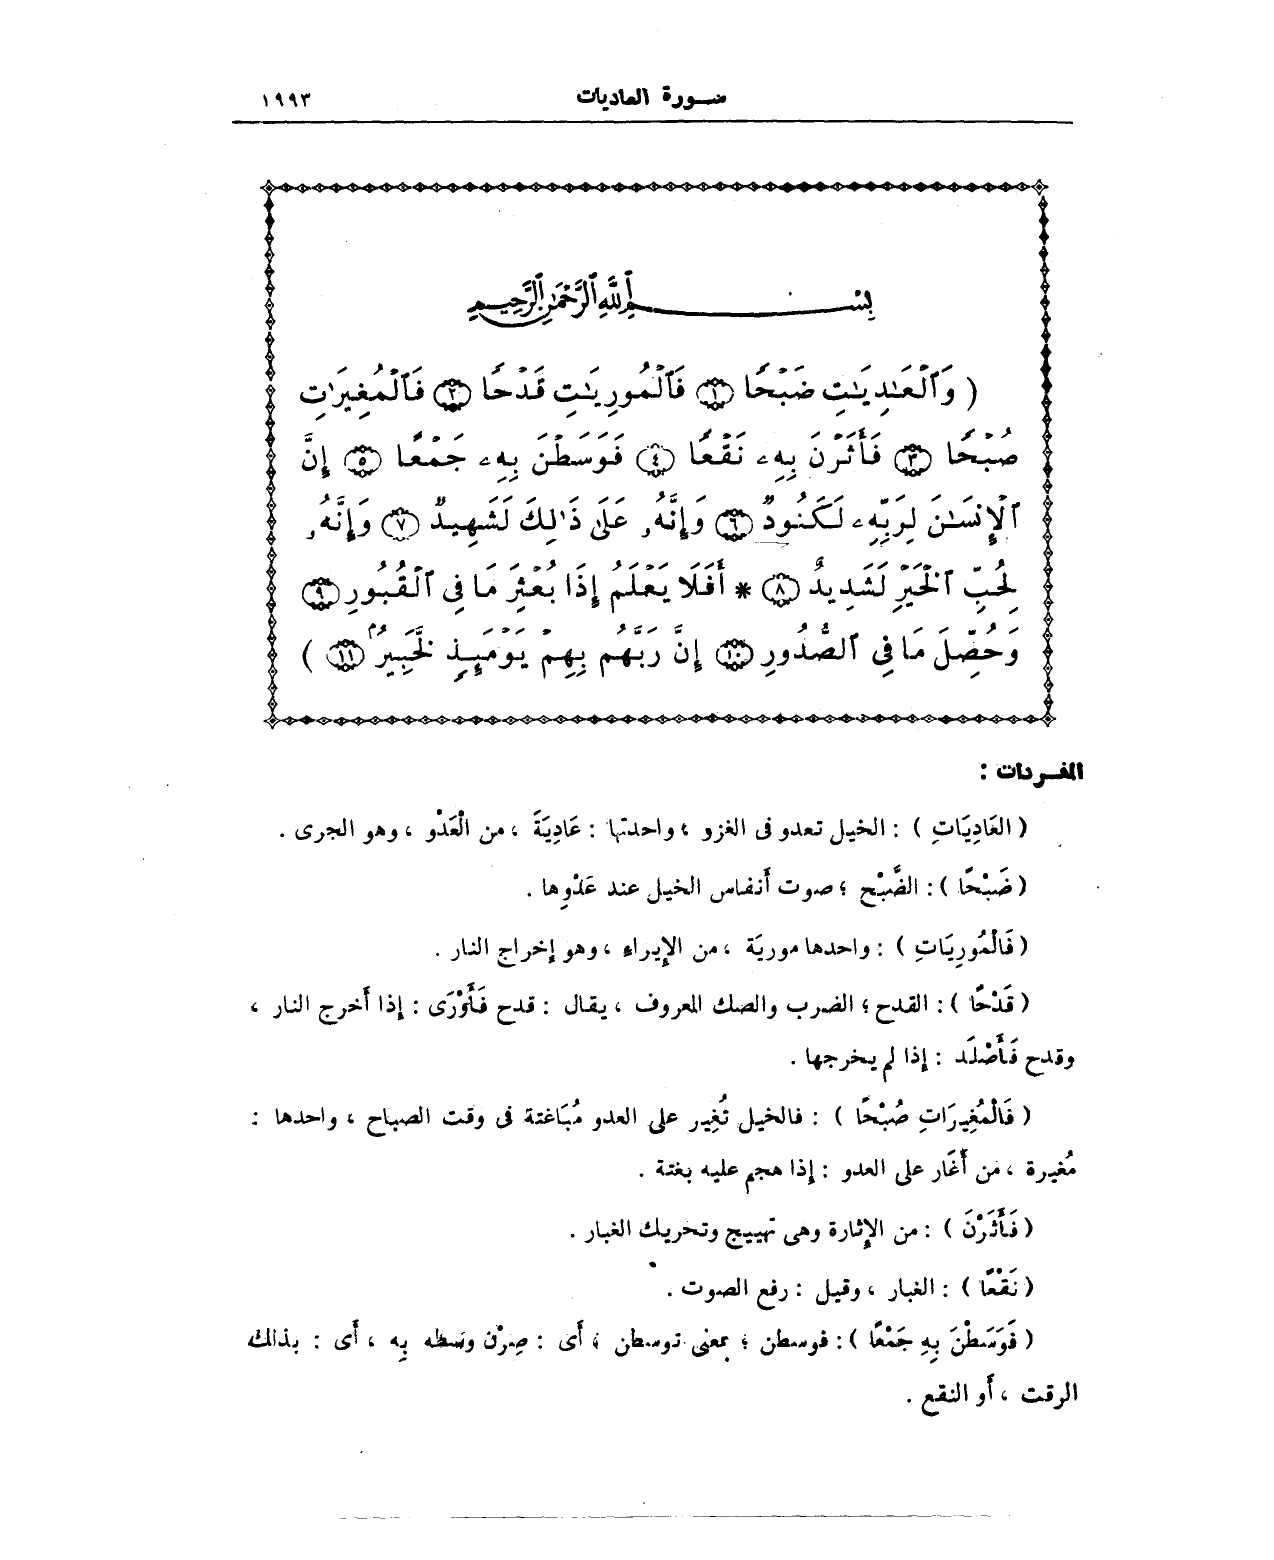 سورة العاديات ١٩٩٣
بِسْمِ ٱللَّهِ ٱلرَّحْمَٰنِ ٱلرَّحِيمِ
( وَٱلْعَٰدِيَٰتِ ضَبْحًا ۝١ فَٱلْمُورِيَٰتِ قَدْحًا ۝٢ فَٱلْمُغِيرَٰتِ
صُبْحًا ۝٣ فَأَثَرْنَ بِهِۦ نَقْعًا ۝٤ فَوَسَطْنَ بِهِۦ جَمْعًا ۝٥ إِنَّ
ٱلْإِنسَٰنَ لِرَبِّهِۦ لَكَنُودٌ ۝٦ وَإِنَّهُۥ عَلَىٰ ذَٰلِكَ لَشَهِيدٌ ۝٧ وَإِنَّهُۥ
لِحُبِّ ٱلْخَيْرِ لَشَدِيدٌ ۝٨ * أَفَلَا يَعْلَمُ إِذَا بُعْثِرَ مَا فِى ٱلْقُبُورِ ۝٩
وَحُصِّلَ مَا فِى ٱلصُّدُورِ ۝١٠ إِنَّ رَبَّهُم بِهِمْ يَوْمَئِذٍ لَّخَبِيرٌۢ ۝١١ )
المفردات :
( العَادِيَاتِ ) : الخيل تعدو فى الغزو ، واحدتها : عَادِيَةَ ، من الْعَدْو ، وهو الجرى .
( ضَبْحًا ) : الضَّبْح ؛ صوت أنفاس الخيل عند عَدْوِها .
( فَالْمُورِيَاتِ ) : واحدها مورِيَة ، من الإيراء ، وهو إخراج النار .
( قَدْحًا ) : القدح ؛ الضرب والصك المعروف ، يقال : قدح فَأَوْرَى : إذا أخرج النار ،
وقدح فَأَصْلَد : إذا لم يخرجها .
( فَالْمُغِيرَاتِ صُبْحًا ) : فالخيل تُغِير على العدو مُبَاغتة فى وقت الصباح ، واحدها :
مُغيرة ، من أَغَار على العدو : إذا هجم عليه بغتة .
( فَأَثَرْنَ ) : من الإثارة وهى تهييج وتحريك الغبار .
( نَقْعًا ) : الغبار ، وقيل : رفع الصوت .
( فَوَسَطْنَ بِهِ جَمْعًا ) : فوسطن ؛ بمعنى توسطن ، أَى : صِرْن وسطه بِه ، أَى : بذلك
الوقت ، أَو النقع .